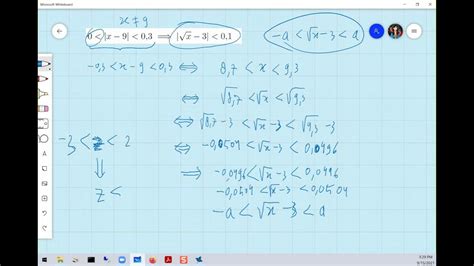 Microsoft Whiteboard
x ≠ 9
0 < |x − 9| < 0,3 ⟹ |√x − 3| < 0,1
−a < √x − 3 < a
−0,3 < x − 9 < 0,3 ⟺ 8,7 < x < 9,3
⟺ √8,7 < √x < √9,3
⟺ √8,7 − 3 < √x − 3 < √9,3 − 3
⟺ −0,0504 < √x − 3 < 0,0496
−3 < z < 2
⇓
z <
⟹ −0,0496 < √x − 3 < 0,0496
−0,0504 < √x − 3 < 0,0504
−a < √x − 3 < a
3:29 PM
9/15/2021